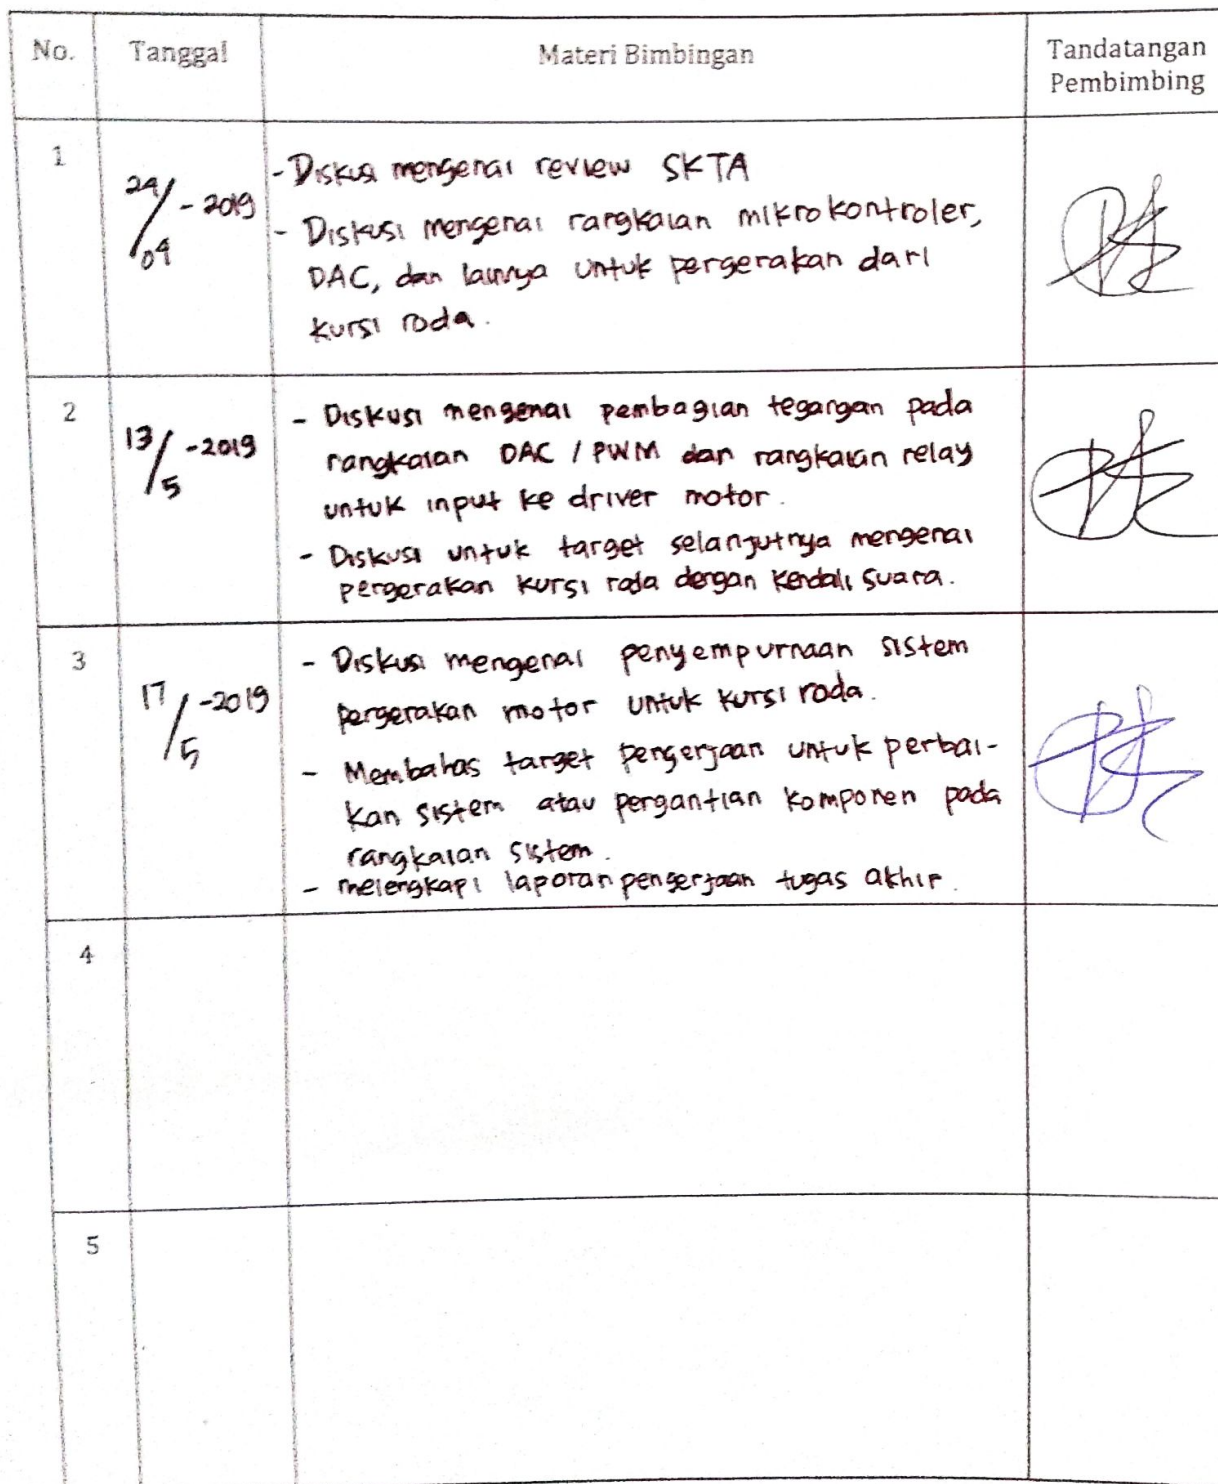 No.
Tanggal
Materi Bimbingan
Tandatangan
Pembimbing
1
24/04 - 2019
- Diskusi mengenai review SKTA
- Diskusi mengenai rangkaian mikrokontroler,
DAC, dan lainnya untuk pergerakan dari
kursi roda.
2
13/5 - 2019
- Diskusi mengenai pembagian tegangan pada
rangkaian DAC / PWM dan rangkaian relay
untuk input ke driver motor.
- Diskusi untuk target selanjutnya mengenai
pergerakan kursi roda dengan kendali suara.
3
17/5 - 2019
- Diskusi mengenai penyempurnaan sistem
pergerakan motor untuk kursi roda.
- Membahas target pengerjaan untuk perbai-
kan sistem atau pergantian komponen pada
rangkaian sistem.
- melengkapi laporan pengerjaan tugas akhir.
4
5